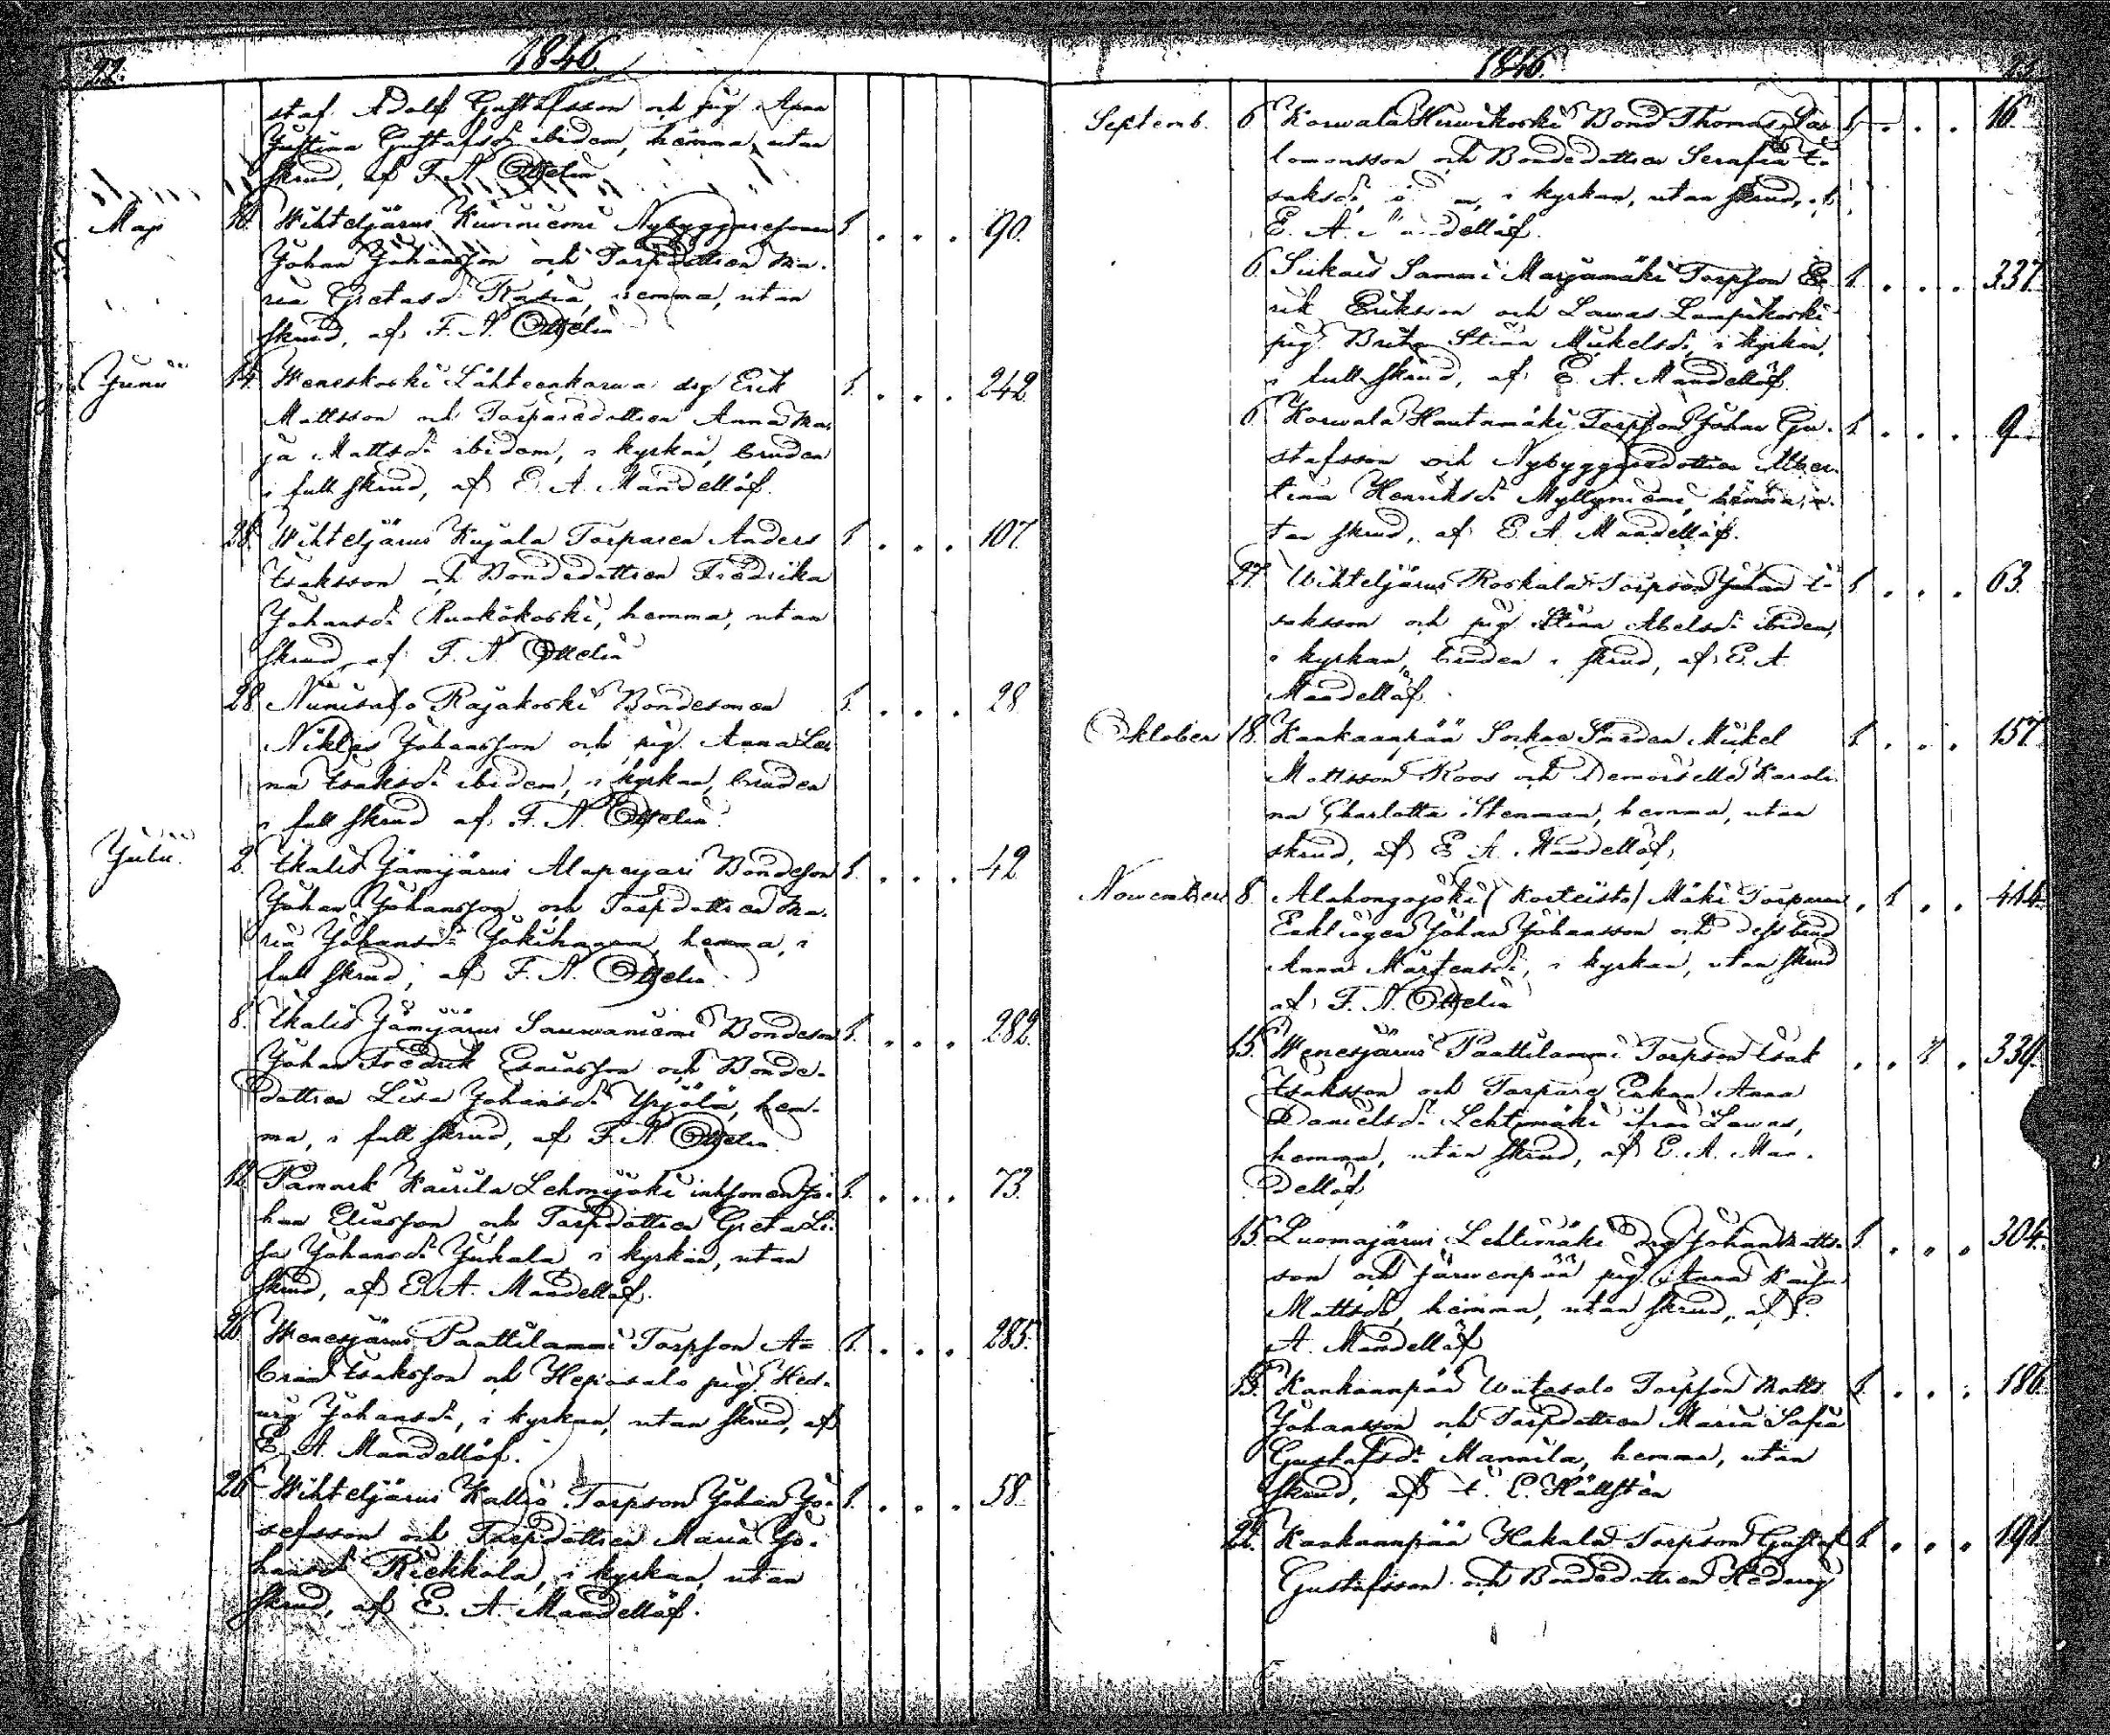 22.
1846.
staf Adolf Gustafsson och pig. Anna
Justina Gustafsd:r ibidem, hemma, utan
skrud, af F. N. Ottelin
Maji 10. Wihteljärvi Kiviniemi Nybyggaresonen 1 . . . 90.
Johan Johansson och Torpdottren Ma-
ria Gretasd:r Rasia, hemma, utan
skrud, af F. N. Ottelin
Junii 14. Weneskoski Lähteenkorwa drg Erik 1 . . . 242
Mattsson och Torparedottren Anna Ma-
ja Mattsd:r ibidem, i kyrkan, bruden
i full skrud, af E. A. Mandellöf.
28. Wihteljärvi Kujala Torparen Anders 1 . . . 107.
Isaksson och Bondedottren Fredrika
Johansd:r Ruokokoski, hemma, utan
skrud af F. N. Ottelin
28 Niinisalo Rajakoski Bondesonen 1 . . . 28
Niklas Johansson och pig. Anna Le-
na Isaksd:r ibidem, i kyrkan, bruden
i full skrud af F. N. Ottelin
Julii. 2. Ikalis Jämijärvi Bondeson 1 . . . 42
Johan Johansson och Torpdottren Ma-
ria Johansd:r hemma, i
full skrud, af F. N. Ottelin
8. Ikalis Jämijärvi Sauwaniemi Bondeson 1 . . . 282.
Johan Fredrik Esaiasson och Bonde-
dottren Lisa Johansd:r Yrjölä, hem-
ma, i full skrud, af F. N. Ottelin
12. Påmark Kairila Lehmijoki inhsonen Jo- 1 . . . 73.
han Eliasson och Torpdottren Greta Li-
sa Johansd:r Juhala i kyrkan, utan
skrud, af E. A. Mandellöf.
26. Wenesjärvi Paattilammi Torpson A= 1 . . . 285.
bram Isaksson och Heposalo pig. Hed-
wig Johansd:r, i kyrkan, utan skrud, af
E. A. Mandellöf.
26 Wihteljärvi Kallio Torpson Johan Jo- 1 . . . 58
sefsson och Torpdottren Maria Jo-
hansd:r Riekkala, i kyrkan, utan
skrud, af E. A. Mandellöf.
1846.
Septemb. 6 Korwala Hirwikoski Bond Thomas Sa- 1 . . . 16.
lomonsson och Bondedottren Serafia I-
saksd:r i kyrkan, utan skrud, af
E. A. Mandellöf.
6. Siikais Sammi Marjamäki Torpson E- 1 . . . 337.
rik Eriksson och Lawas Lampikoski
pig. Brita Stina Mickelsd:r i kyrkan,
i full skrud, af E. A. Mandellöf.
6 Korwala Hautamäki Torpson Johan Gu- 1 . . . 9
stafsson och Nybyggaredottren Alber-
tina Henriksd:r Myllyniemi, hemma, u-
tan skrud, af E. A. Mandellöf.
27. Wihteljärvi Roskala Torpson Johan I- 1 . . . 63.
saksson och pig. Stina Abelsd:r ibidem,
i kyrkan, bruden i skrud, af E. A.
Mandellöf.
Oktober 18. Kankaanpää Smeden Mickel 1 . . . 157.
Mattsson Roos och Demoiselle Karoli-
na Charlotta Stenman, hemma, utan
skrud, af E. A. Mandellöf,
November 8. Alahongojoki (Korteisto) Mäki Torparen . 1 . . 444.
Enklingen Johan Johansson och dess brud
Anna Mårtensd:r, i kyrkan, utan skrud
af F. N. Ottelin
15. Wenesjärvi Paattilammi Torpson Isak . . 1 . 339.
Isaksson och Torpare Enkan Anna
Danielsd:r Lehtimäki ifrån Lawas,
hemma, utan skrud, af E. A. Man-
dellöf
15. Luomajärvi Lehtimäki drg Johan Matts- 1 . . . 304.
son och Järvenpää pig. Anna Kaisa
Mattsd:r, hemma, utan skrud, af E.
A. Mandellöf
15. Kankaanpää Wiitasalo Torpson Matts 1 . . . 186.
Johansson och Torpdottren Maria Sofia
Gustafsd:r Mannila, hemma, utan
skrud, af E. Hällstén
22. Kankaanpää Hakala Torpson Gustaf 1 . . . 191.
Gustafsson och Bondedottren Hedwig